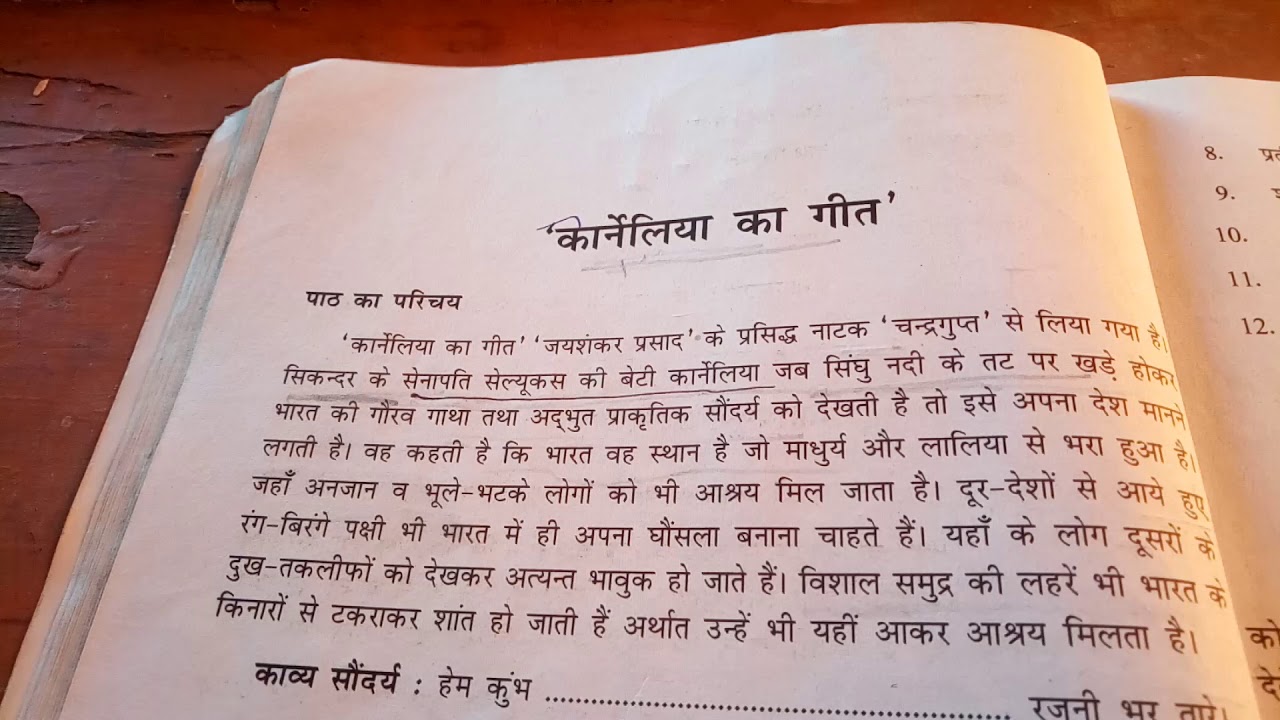 'कार्नेलिया का गीत'
पाठ का परिचय
'कार्नेलिया का गीत' 'जयशंकर प्रसाद' के प्रसिद्ध नाटक 'चन्द्रगुप्त' से लिया गया है।
सिकन्दर के सेनापति सेल्यूकस की बेटी कार्नेलिया जब सिंधु नदी के तट पर खड़े होकर
भारत की गौरव गाथा तथा अद्भुत प्राकृतिक सौंदर्य को देखती है तो इसे अपना देश मानने
लगती है। वह कहती है कि भारत वह स्थान है जो माधुर्य और लालिया से भरा हुआ है।
जहाँ अनजान व भूले-भटके लोगों को भी आश्रय मिल जाता है। दूर-देशों से आये हुए
रंग-बिरंगे पक्षी भी भारत में ही अपना घौंसला बनाना चाहते हैं। यहाँ के लोग दूसरों के
दुख-तकलीफों को देखकर अत्यन्त भावुक हो जाते हैं। विशाल समुद्र की लहरें भी भारत के
किनारों से टकराकर शांत हो जाती हैं अर्थात उन्हें भी यहीं आकर आश्रय मिलता है।
काव्य सौंदर्य : हेम कुंभ ........................................ रजनी भर तारे।
8.
9.
10.
11.
12.
को